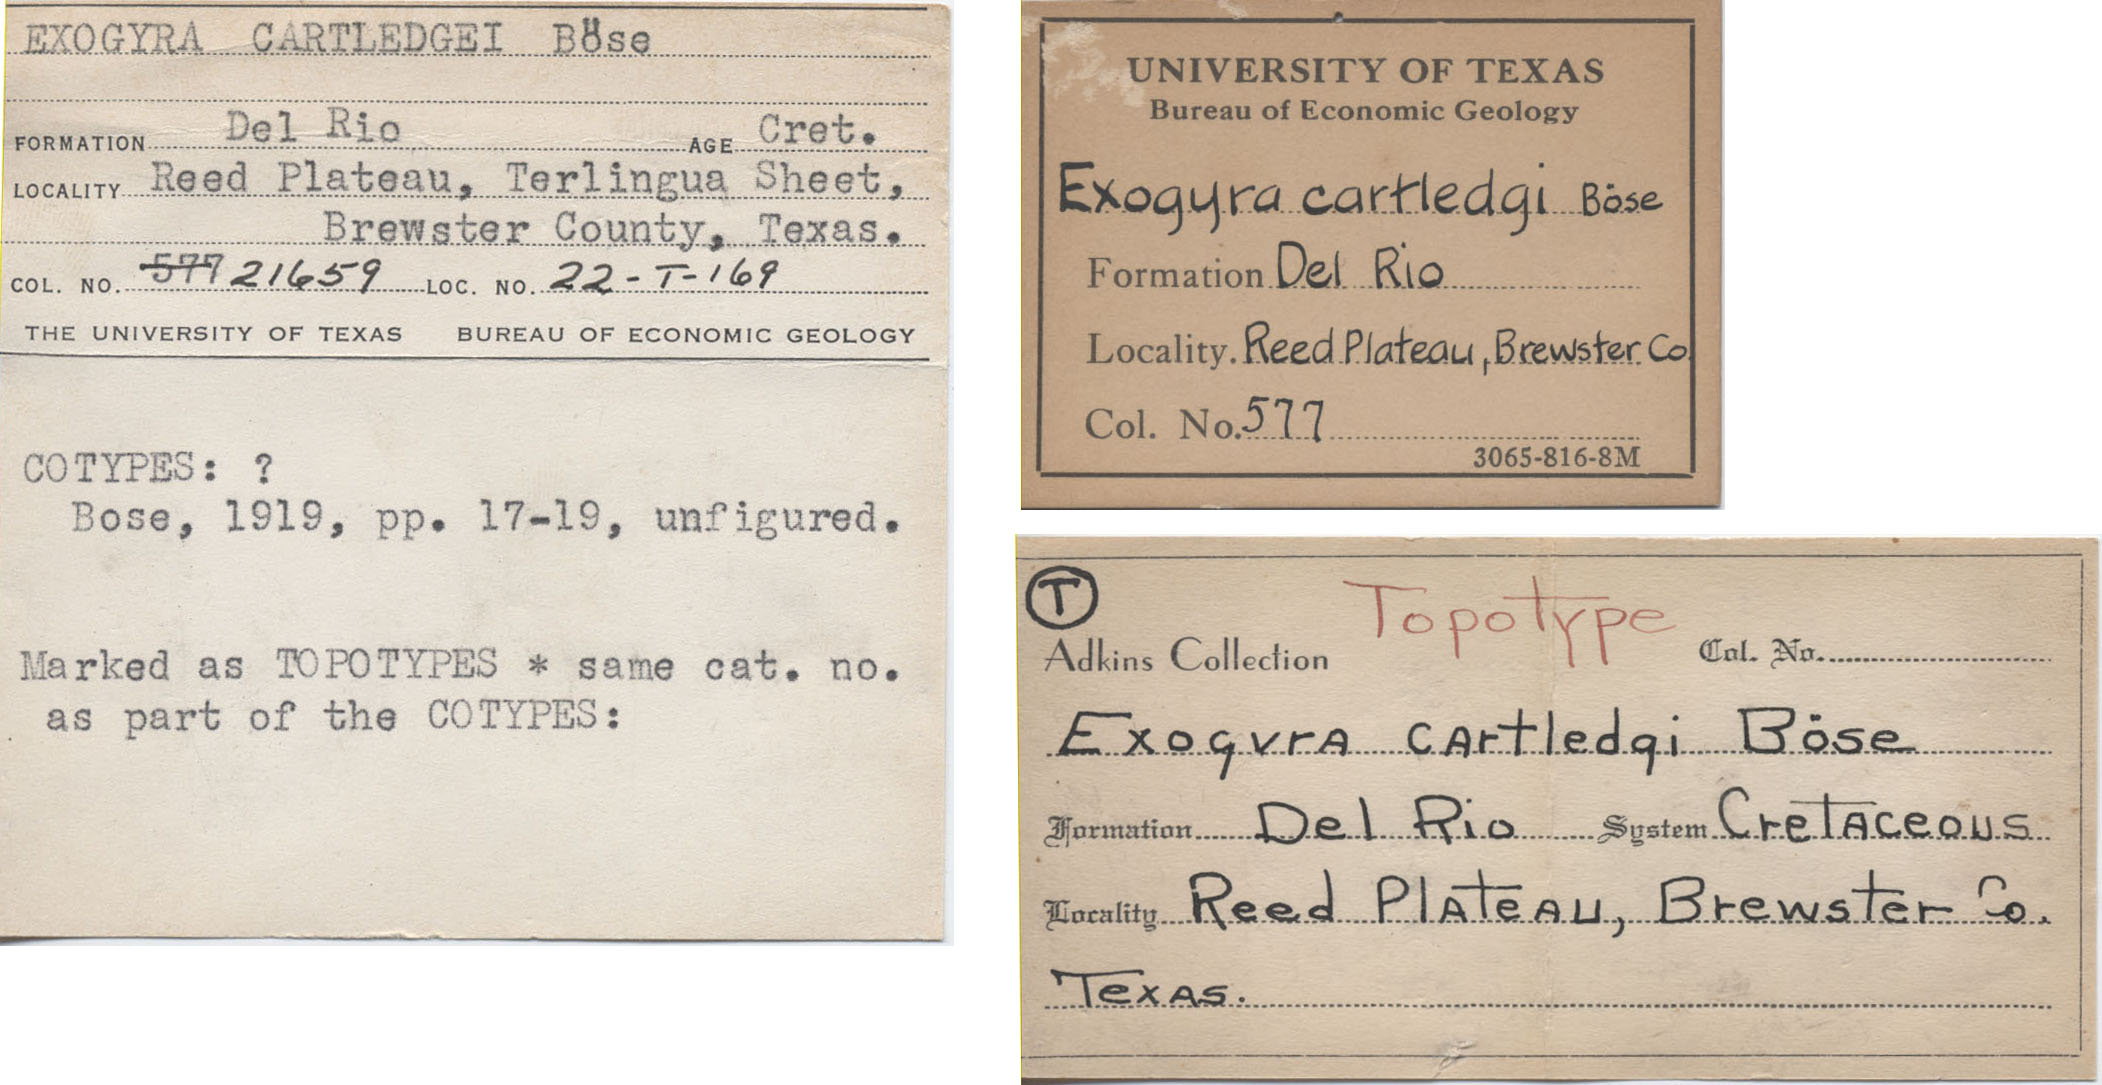 EXOGYRA CARTLEDGEI Böse
FORMATION Del Rio AGE Cret.
LOCALITY Reed Plateau, Terlingua Sheet,
Brewster County, Texas.
COL. NO. 577 21659 LOC. NO. 22-T-169
THE UNIVERSITY OF TEXAS BUREAU OF ECONOMIC GEOLOGY
COTYPES: ?
Bose, 1919, pp. 17-19, unfigured.
Marked as TOPOTYPES * same cat. no.
as part of the COTYPES:
UNIVERSITY OF TEXAS
Bureau of Economic Geology
Exogyra cartledgi Böse
Formation Del Rio
Locality. Reed Plateau, Brewster Co.
Col. No. 577
3065-816-8M
T
Topotype
Adkins Collection Col. No.
Exogyra cartledgi Böse
Formation Del Rio System Cretaceous
Locality Reed Plateau, Brewster Co.
Texas.